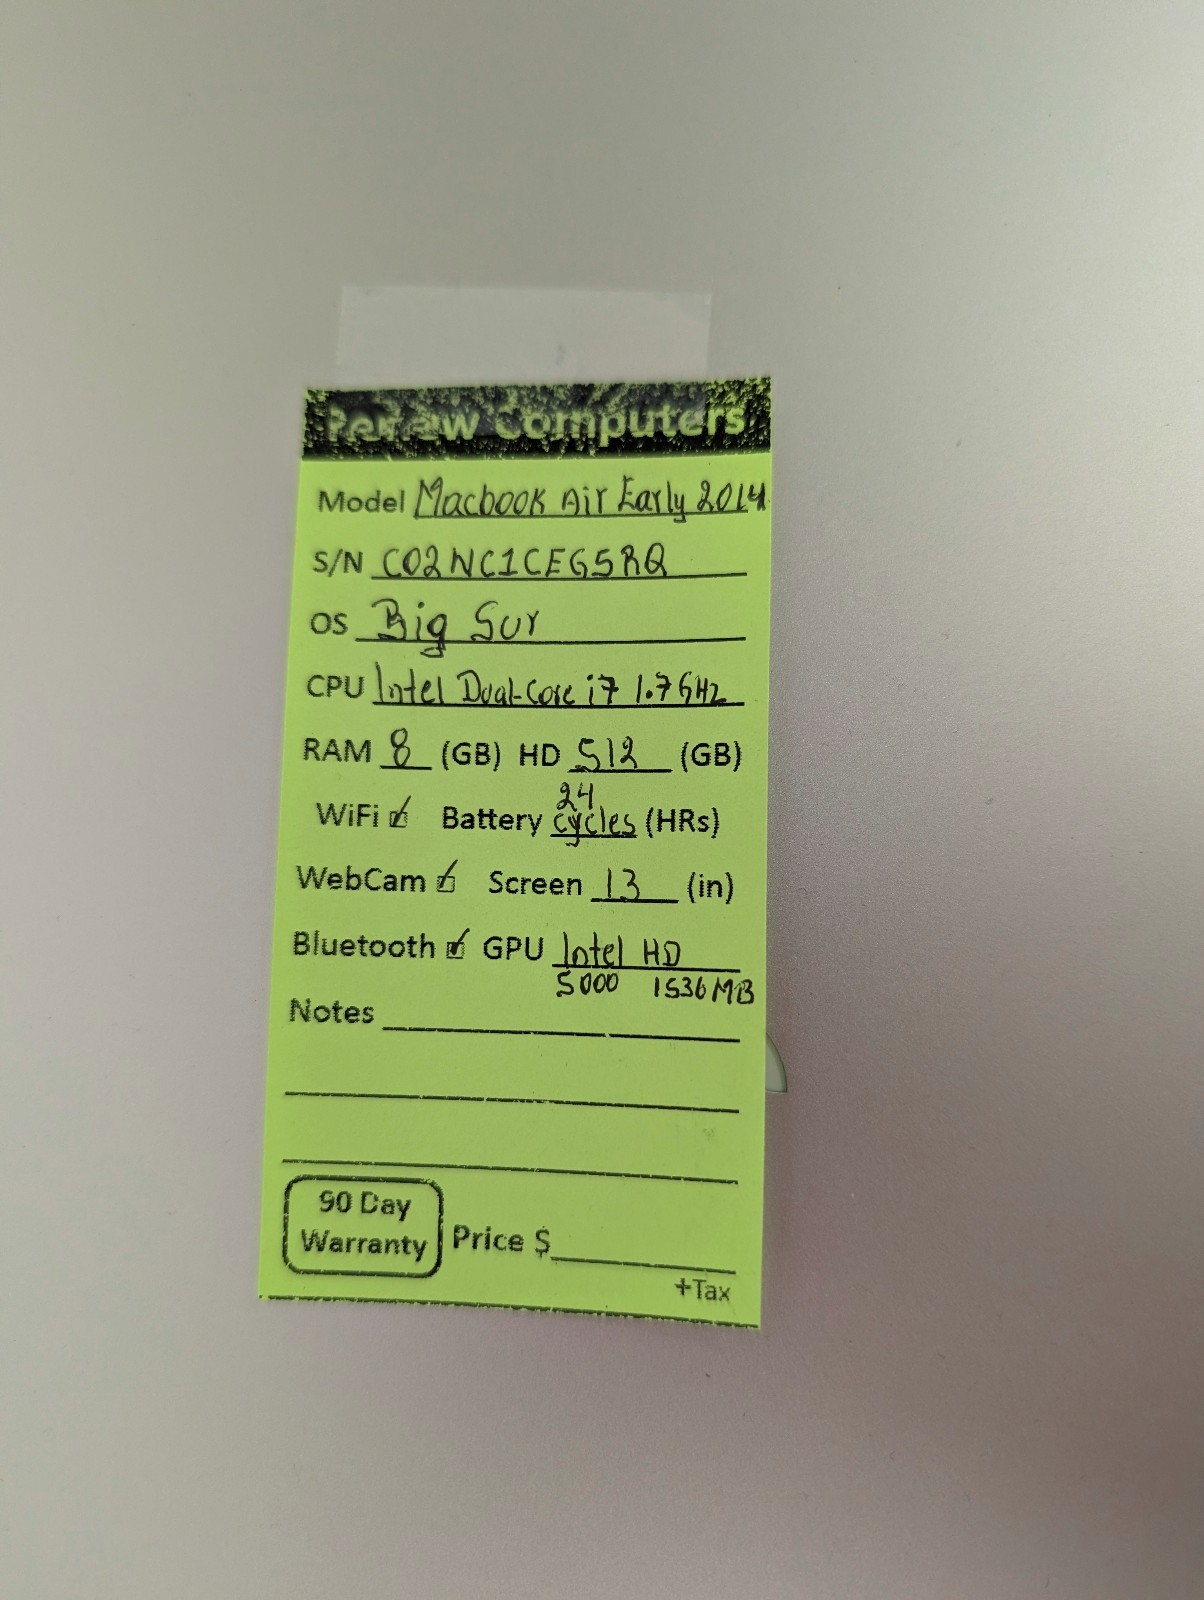 Renew Computers
Model Macbook Air Early 2014
S/N C02NC1CEG5RQ
OS Big Sur
CPU Intel Dual-Core i7 1.7GHz
RAM 8 (GB) HD 512 (GB)
WiFi Battery 24 cycles (HRs)
WebCam Screen 13 (in)
Bluetooth GPU Intel HD
5000 1536MB
Notes
90 Day
Warranty Price $
+Tax